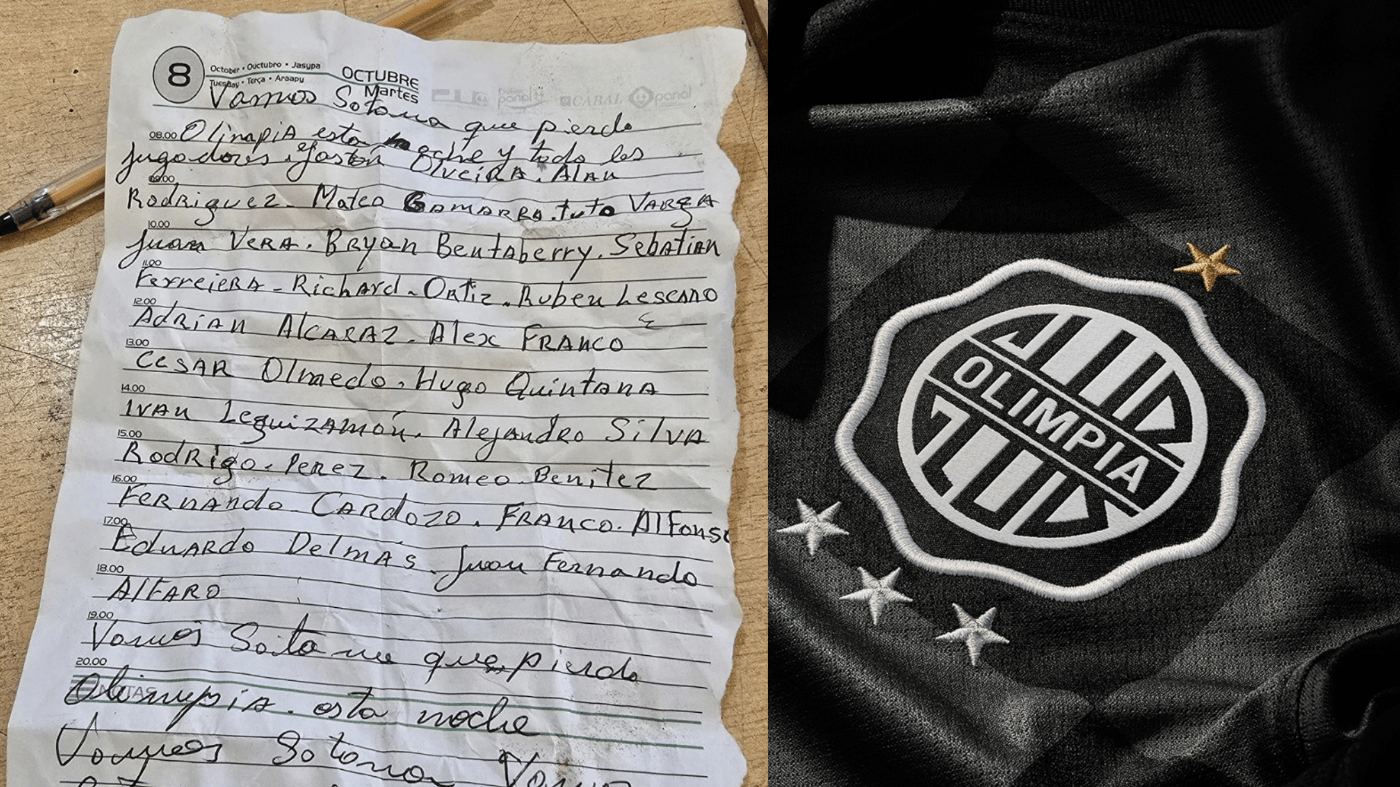 8
October • Ouctubro • Jasypa
Tuesday • Terça • Araapy
OCTUBRE
Martes
panal
CABAL
panal
Vamos Sotana que pierdo
08.00 Olimpia esta noche y todo los
jugadores. Gaston Olveira. Alan
09.00
Rodriguez. Mateo Gamarra. tuto Varga
10.00
Juan Vera. Bryan Bentaberry. Sebatian
11.00
Ferreiera - Richard. Ortiz. Ruben Lescano
12.00
Adrian Alcaraz. Alex Franco
13.00
Cesar Olmedo. Hugo Quintana
14.00
Ivan Leguizamón. Alejandro Silva
15.00
Rodrigo. Perez. Romeo. Benitez
16.00
Fernando Cardozo. Franco. Alfonso
17.00
Eduardo Delmás. Juan Fernando
18.00
Alfaro
19.00
Vamos Satana que pierdo
20.00
Olimpia. esta noche
NOTAS
Vamos Sotana
OLIMPIA